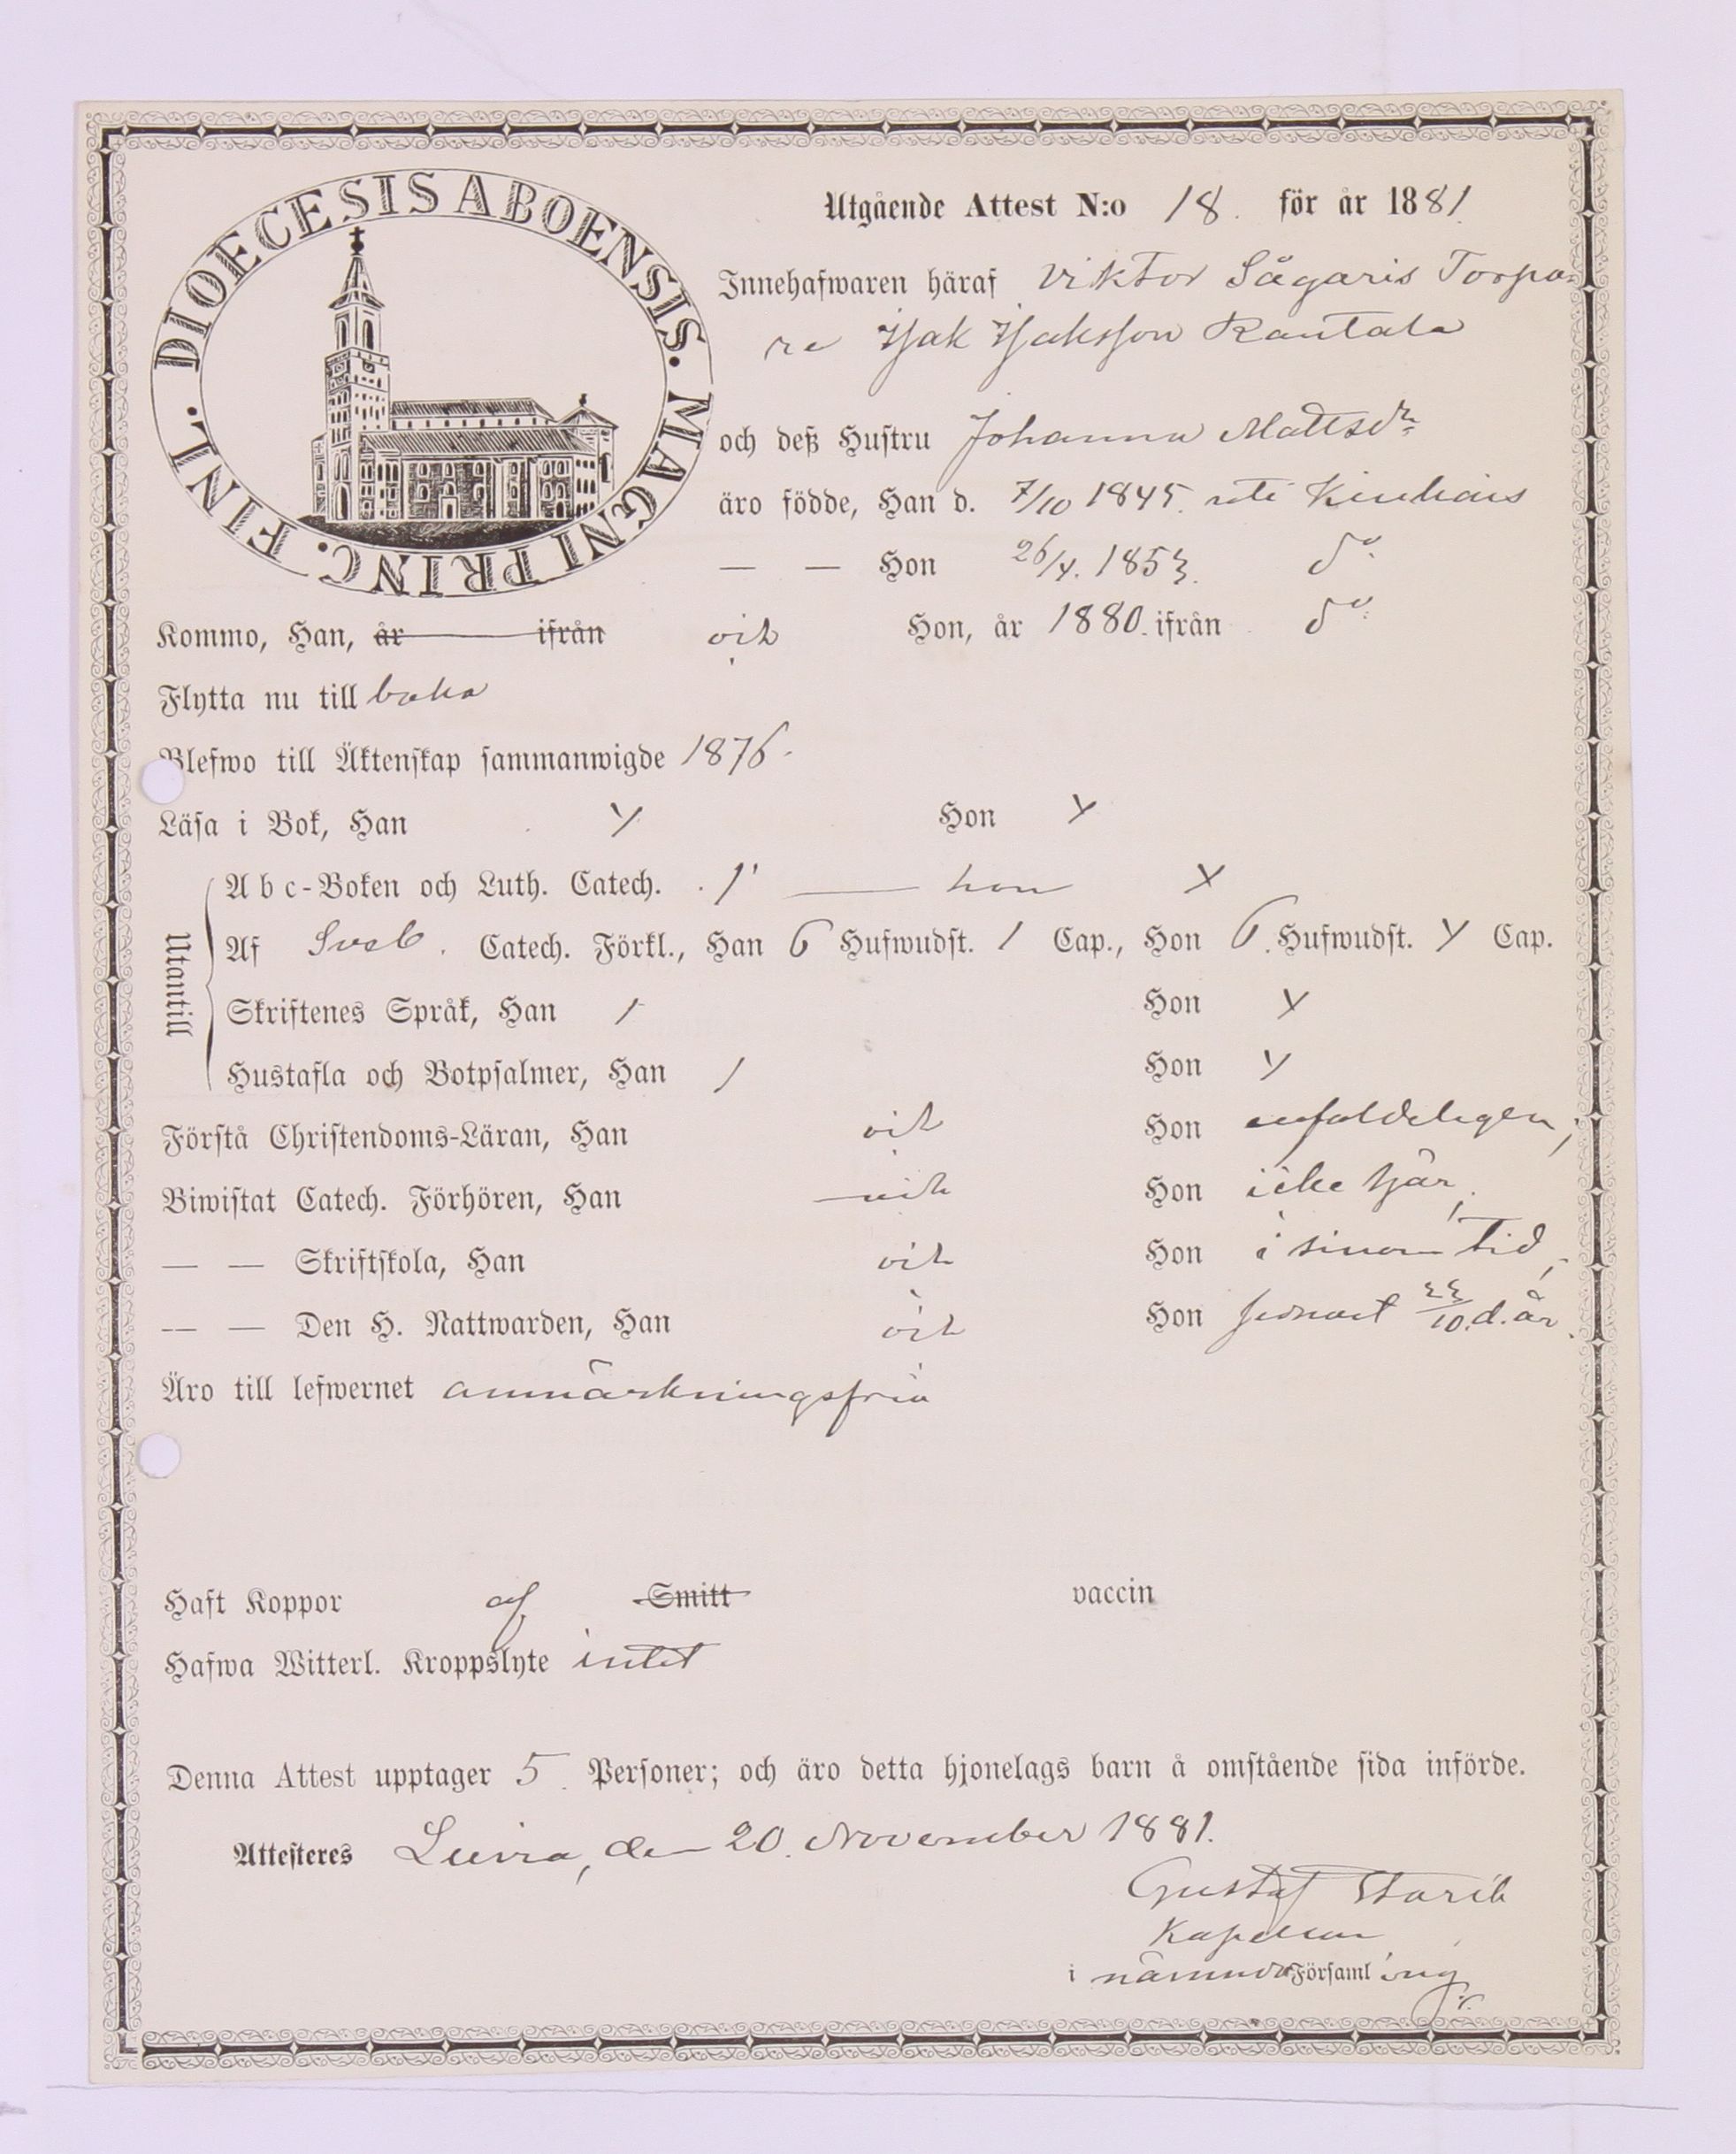 DIOECESIS ABOENSIS. MAGNI PRINC. FINL.
Utgående Attest N:o 18. för år 1881.
Innehafwaren häraf Viktor Sågaris Torpa-
re Isak Isaksson Rantala
och deß Hustru Johanna Mattsdr
äro födde, Han d. 7/10 1845. uti Kiukais
— — Hon 26/4. 1853. do.
Kommo, Han, år ifrån vit Hon, år 1880. ifrån do.
Flytta nu till baka
Blefwo till Äktenskap sammanwigde 1876.
Läsa i Bok, Han Y Hon Y
Utantill
Abc-Boken och Luth. Catech. 1 — hon X
Af Sveb. Catech. Förkl., Han 6 Hufwudst. 1 Cap., Hon 6. Hufwudst. Y Cap.
Skriftenes Språk, Han 1 Hon Y
Hustafla och Botpsalmer, Han 1 Hon Y
Förstå Christendoms-Läran, Han vit Hon enfaldeligen,
Biwistat Catech. Förhören, Han vit Hon icke här,
— — Skriftskola, Han vit Hon i sinom tid,
— — Den H. Nattwarden, Han vit Hon senast 23/10. d. år.
Äro till lefwernet anmärkningsfria
Haft Koppor af Smitt vaccin
Hafwa Witterl. Kroppslyte intet
Denna Attest upptager 5. Personer; och äro detta hjonelags barn å omstående sida införde.
Attesteres Luvia, den 20. November 1881.
Gustaf
Kapellan
i nämnda Församling